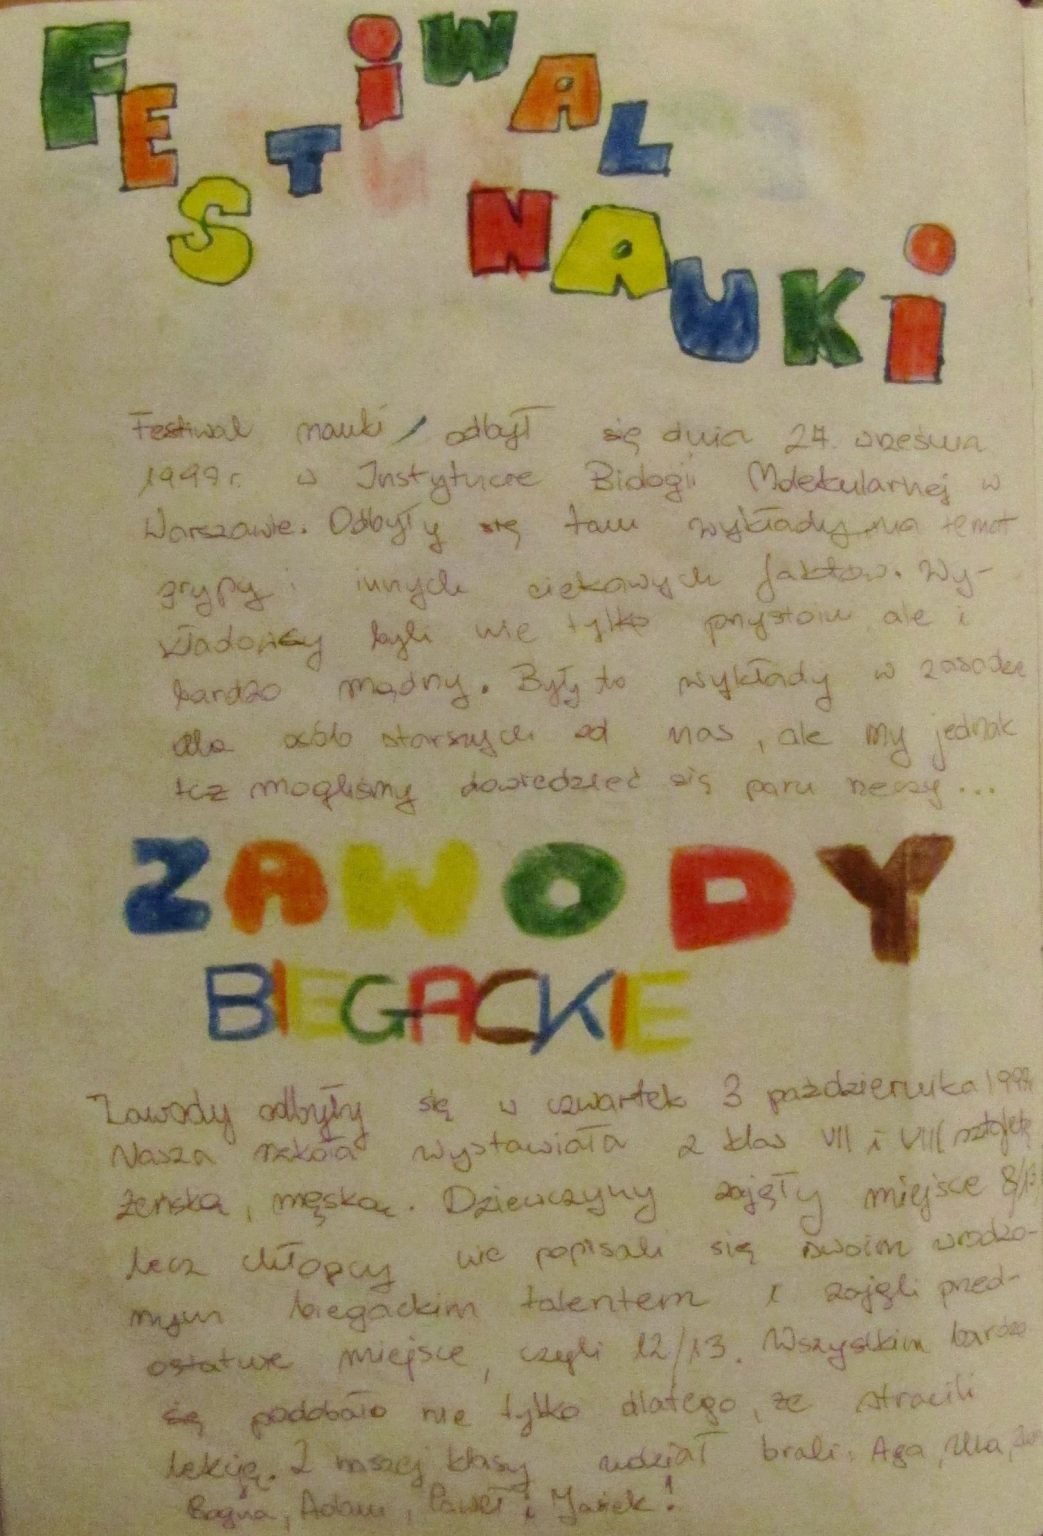 FESTIWAL
NAUKI
Festiwal nauki odbył się dnia 24. września
1999r. w Instytucie Biologii Molekularnej w
Warszawie. Odbyły się tam wykłady na temat
grypy i innych ciekawych faktów. Wy-
kładowcy byli nie tylko przystojni ale i
bardzo mądrzy. Były to wykłady w zasadzie
dla osób starszych od nas, ale my jednak
też mogliśmy dowiedzieć się paru rzeczy...
ZAWODY
BIEGACKIE
Zawody odbyły się w czwartek 3 października 1999
Nasza szkoła wystawiała z klas VII i VIII sztafetę
żeńską, męską. Dziewczyny zajęły miejsce 8/13
lecz chłopcy nie popisali się swoim wrodzo-
nym biegackim talentem i zajęli przed-
ostatnie miejsce, czyli 12/13. Wszystkim bardzo
się podobało nie tylko dlatego, że stracili
lekcje. Z naszej klasy udział brali: Aga, Ula,
Bogna, Adam, Paweł i Jasiek!